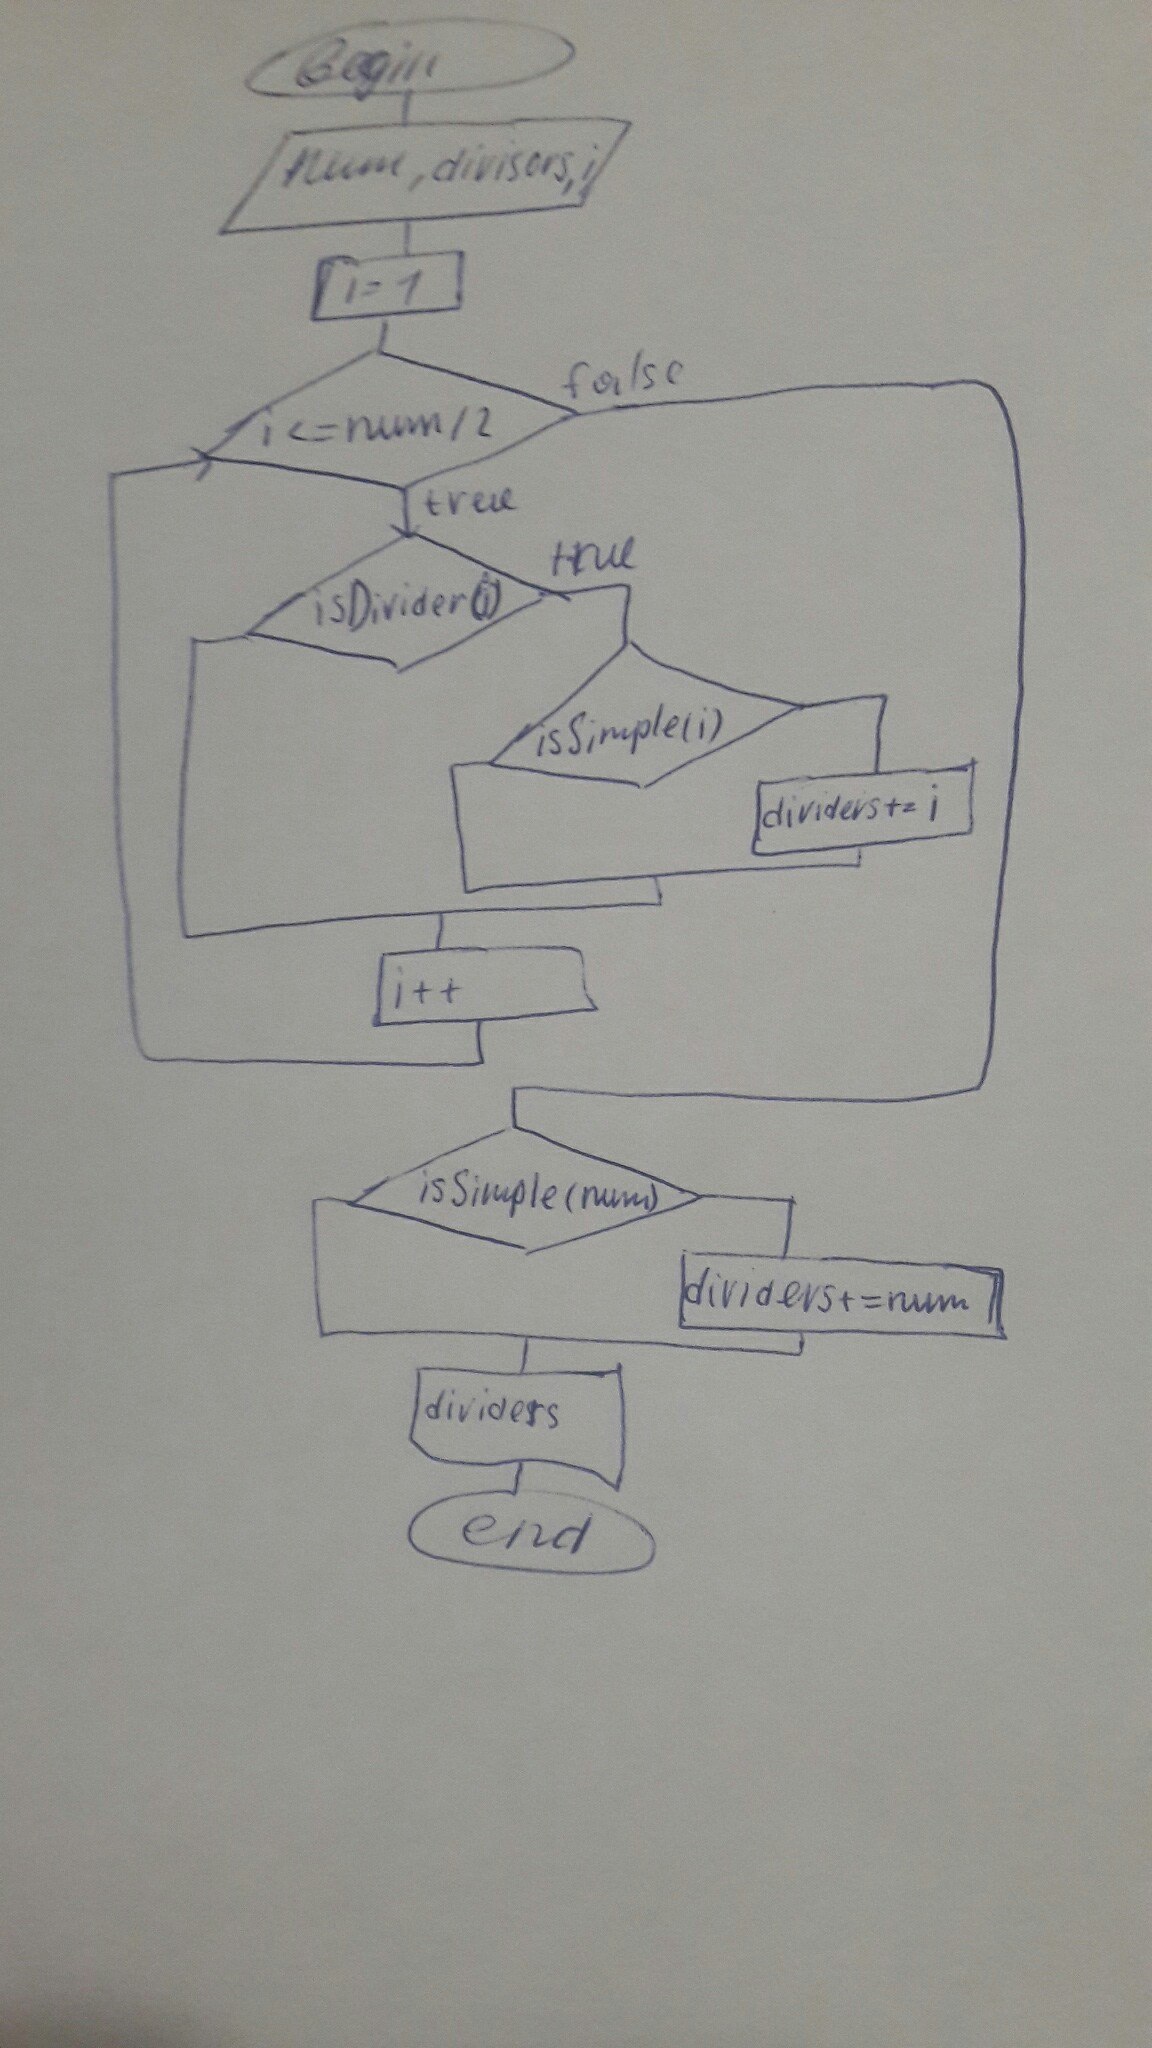 Begin
num, divisors, i
i = 1
i <= num / 2
false
true
isDivider(i)
true
isSimple(i)
dividers += i
i++
isSimple(num)
dividers += num
dividers
end